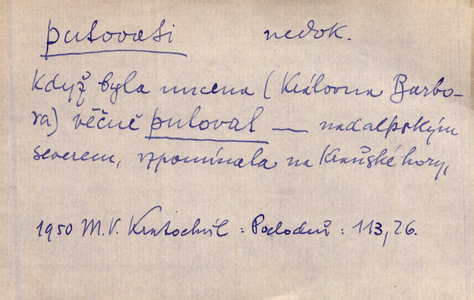 putovati nedok.
Když byla nucena (Královna Barbo-
ra) věčně putovat — nadalpským
severem, vzpomínala na Kraňské hory,
1950 M.V. Kratochvíl : Podobuš : 113, 26.